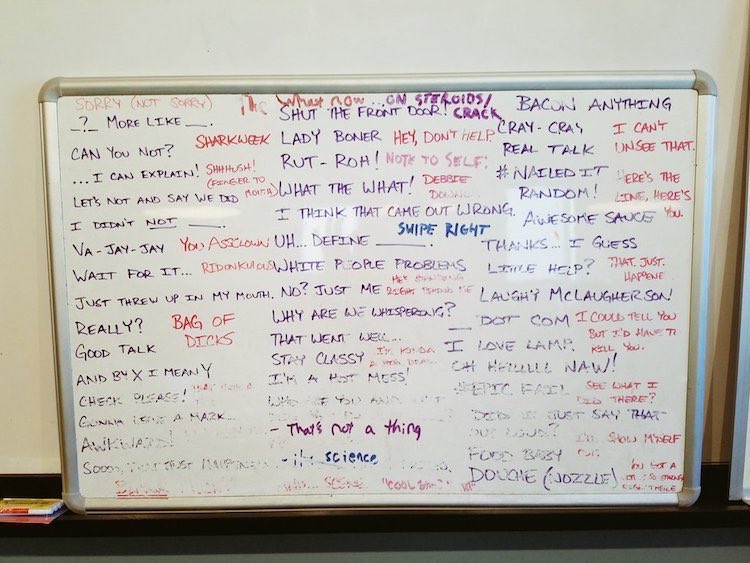 SORRY (NOT SORRY)
_?_ MORE LIKE ___.
SHARKWEEK
CAN YOU NOT?
...I CAN EXPLAIN!
SHHHUSH!
(FINGER TO
MOUTH)
LET'S NOT AND SAY WE DID
I DIDN'T NOT ___.
VA-JAY-JAY
YOU ASSCLOWN
WAIT FOR IT...
RIDONKULOUS
JUST THREW UP IN MY MOUTH.
REALLY?
BAG OF
DICKS
GOOD TALK
AND BY X I MEAN Y
CHECK PLEASE!
GONNA LEAVE A MARK...
AWKWARD!
SOOOO, THAT JUST HAPPENED
What now...ON STEROIDS/
CRACK
SHUT THE FRONT DOOR!
LADY BONER
HEY, DON'T HELP.
RUT-ROH!
NOTE TO SELF:
WHAT THE WHAT!
DEBBIE
DOWNER
I THINK THAT CAME OUT WRONG.
SWIPE RIGHT
UH... DEFINE ____.
WHITE PEOPLE PROBLEMS
HE'S STANDING
RIGHT BEHIND ME
NO? JUST ME
WHY ARE WE WHISPERING?
THAT WENT WELL...
STAY CLASSY
I'M KINDA
A BIG DEAL
I'M A HOT MESS!
WHO ARE YOU AND
- That's not a thing
- it's science
SCENE
"COOL
BACON ANYTHING
CRAY-CRAY
I CAN'T
UNSEE THAT.
REAL TALK
#NAILED IT
HERE'S THE
LINE, HERE'S
YOU.
RANDOM!
AWESOME SAUCE
THANKS... I GUESS
LITTLE HELP?
THAT. JUST.
HAPPENE
LAUGHY MCLAUGHERSON!
__ DOT COM
I COULD TELL YOU
BUT I'D HAVE T
KILL YOU.
I LOVE LAMP.
OH HELLLLL NAW!
#EPIC FAIL
SEE WHAT I
DID THERE?
DID I JUST SAY THAT
OUT LOUD?
I'LL SHOW MYSELF
OUT.
FOOD BABY
DOUCHE (NOZZLE)
YOU GOT A